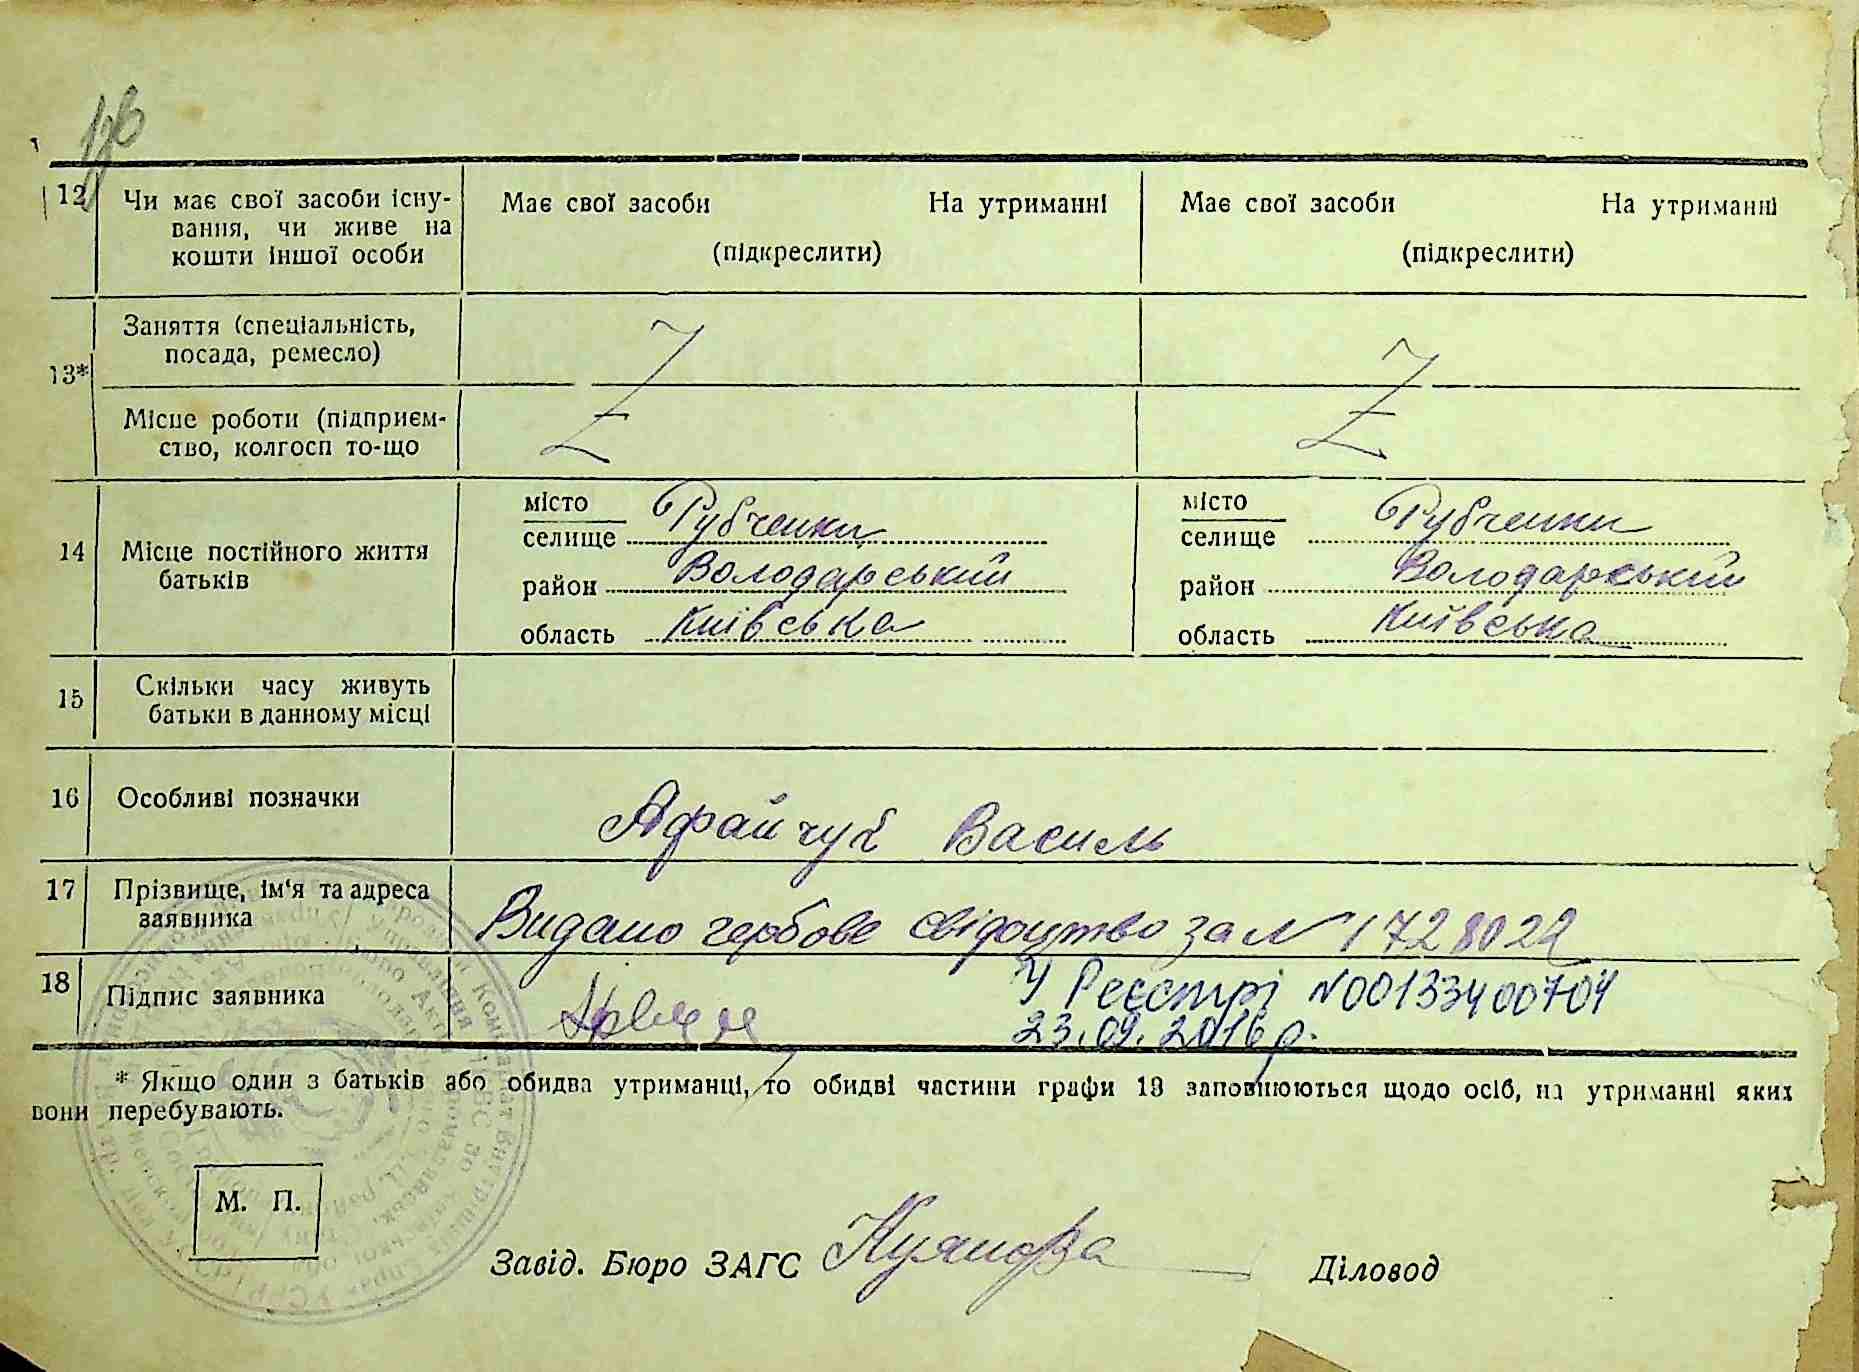 12 Чи має свої засоби існу-
вання, чи живе на
кошти іншої особи
Має свої засоби На утриманні
(підкреслити)
Має свої засоби На утриманні
(підкреслити)
13*
Заняття (спеціальність,
посада, ремесло)
Місце роботи (підприєм-
ство, колгосп то-що
Z Z
14 Місце постійного життя
батьків
місто
селище Рубченки
район Володарський
область Київська
місто
селище Рубченки
район Володарський
область Київська
15 Скільки часу живуть
батьки в данному місці
16 Особливі позначки
Василь
17 Прізвище, ім'я та адреса
заявника
Видано гербове свідоцтво за № 1728022
18 Підпис заявника
У Реєстрі №00133400704
23.09.2016 р.
* Якщо один з батьків або обидва утриманці, то обидві частини графи 13 заповнюються щодо осіб, на утриманні яких
вони перебувають.
М. П.
Завід. Бюро ЗАГС
Діловод